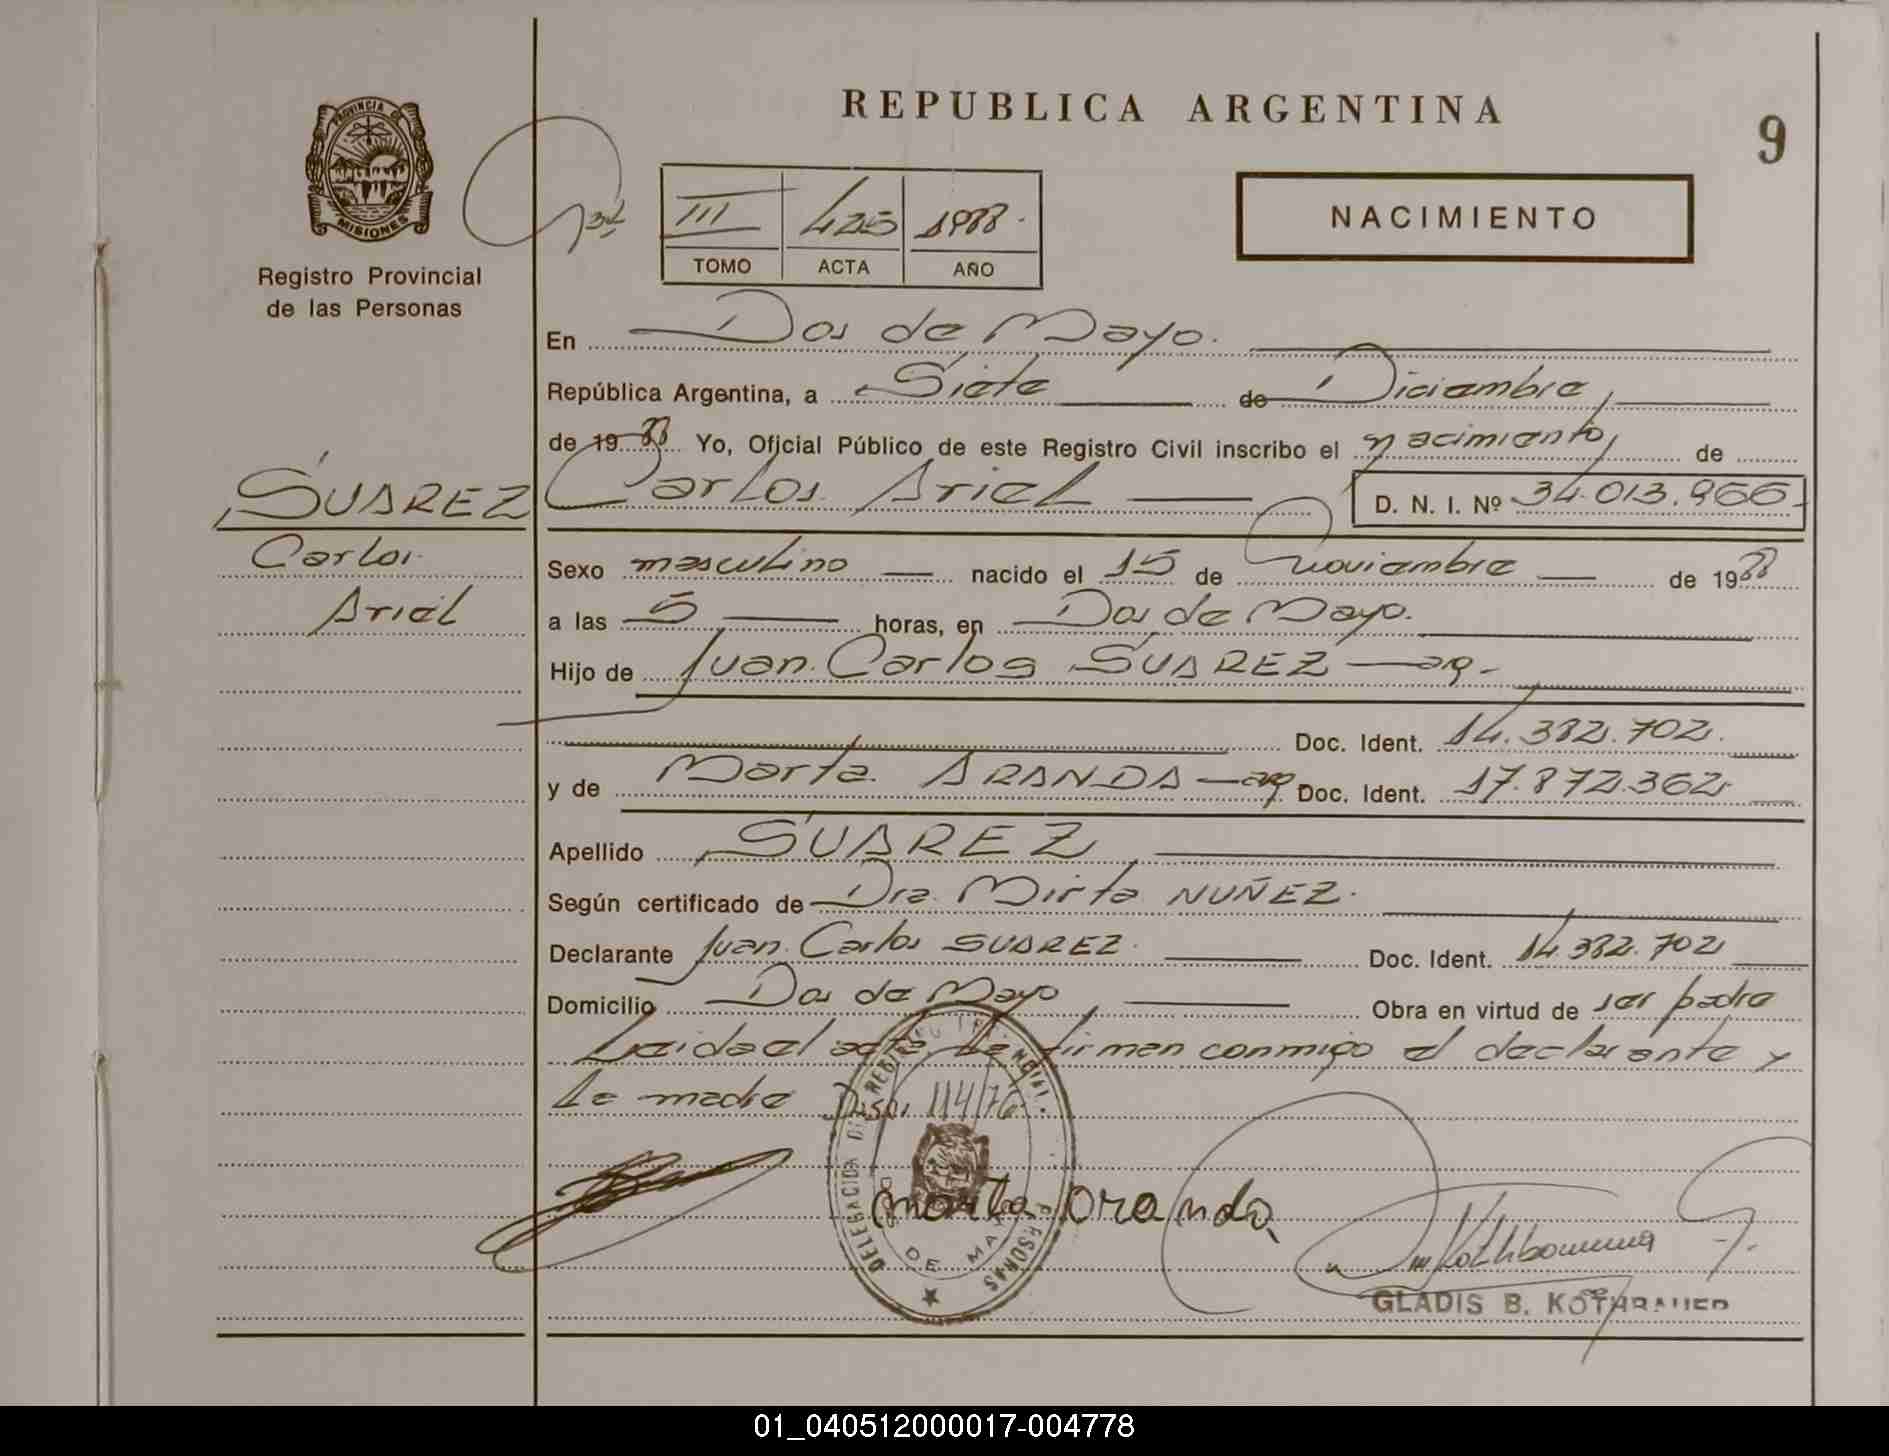 REPUBLICA ARGENTINA
9
PROVINCIA DE
MISIONES
Registro Provincial
de las Personas
III 425 1988.
TOMO ACTA AÑO
NACIMIENTO
En Dos de Mayo.
República Argentina, a Siete de Diciembre,
de 1988 Yo, Oficial Público de este Registro Civil inscribo el nacimiento, de
SUAREZ
Carlos Ariel D. N. I. Nº 34.013.966
Carlos
Ariel
Sexo masculino nacido el 15 de Noviembre de 1988
a las 5 horas, en Dos de Mayo.
Hijo de Juan Carlos SUAREZ — arg.
Doc. Ident. 14.382.702.
y de Marta ARANDA — arg. Doc. Ident. 17.872.362
Apellido SUAREZ
Según certificado de Dra. Mirta NUÑEZ.
Declarante Juan Carlos SUAREZ. Doc. Ident. 14.382.702
Domicilio Dos de Mayo Obra en virtud de ser padre
Leida el acta, la firman conmigo el declarante y
la madre Disp. 114/76
DELEGACION DEL REGISTRO PROVINCIAL PERSONAS
DOS DE MAYO
marta aranda
GLADIS B. KOTHBAUER
01_040512000017-004778